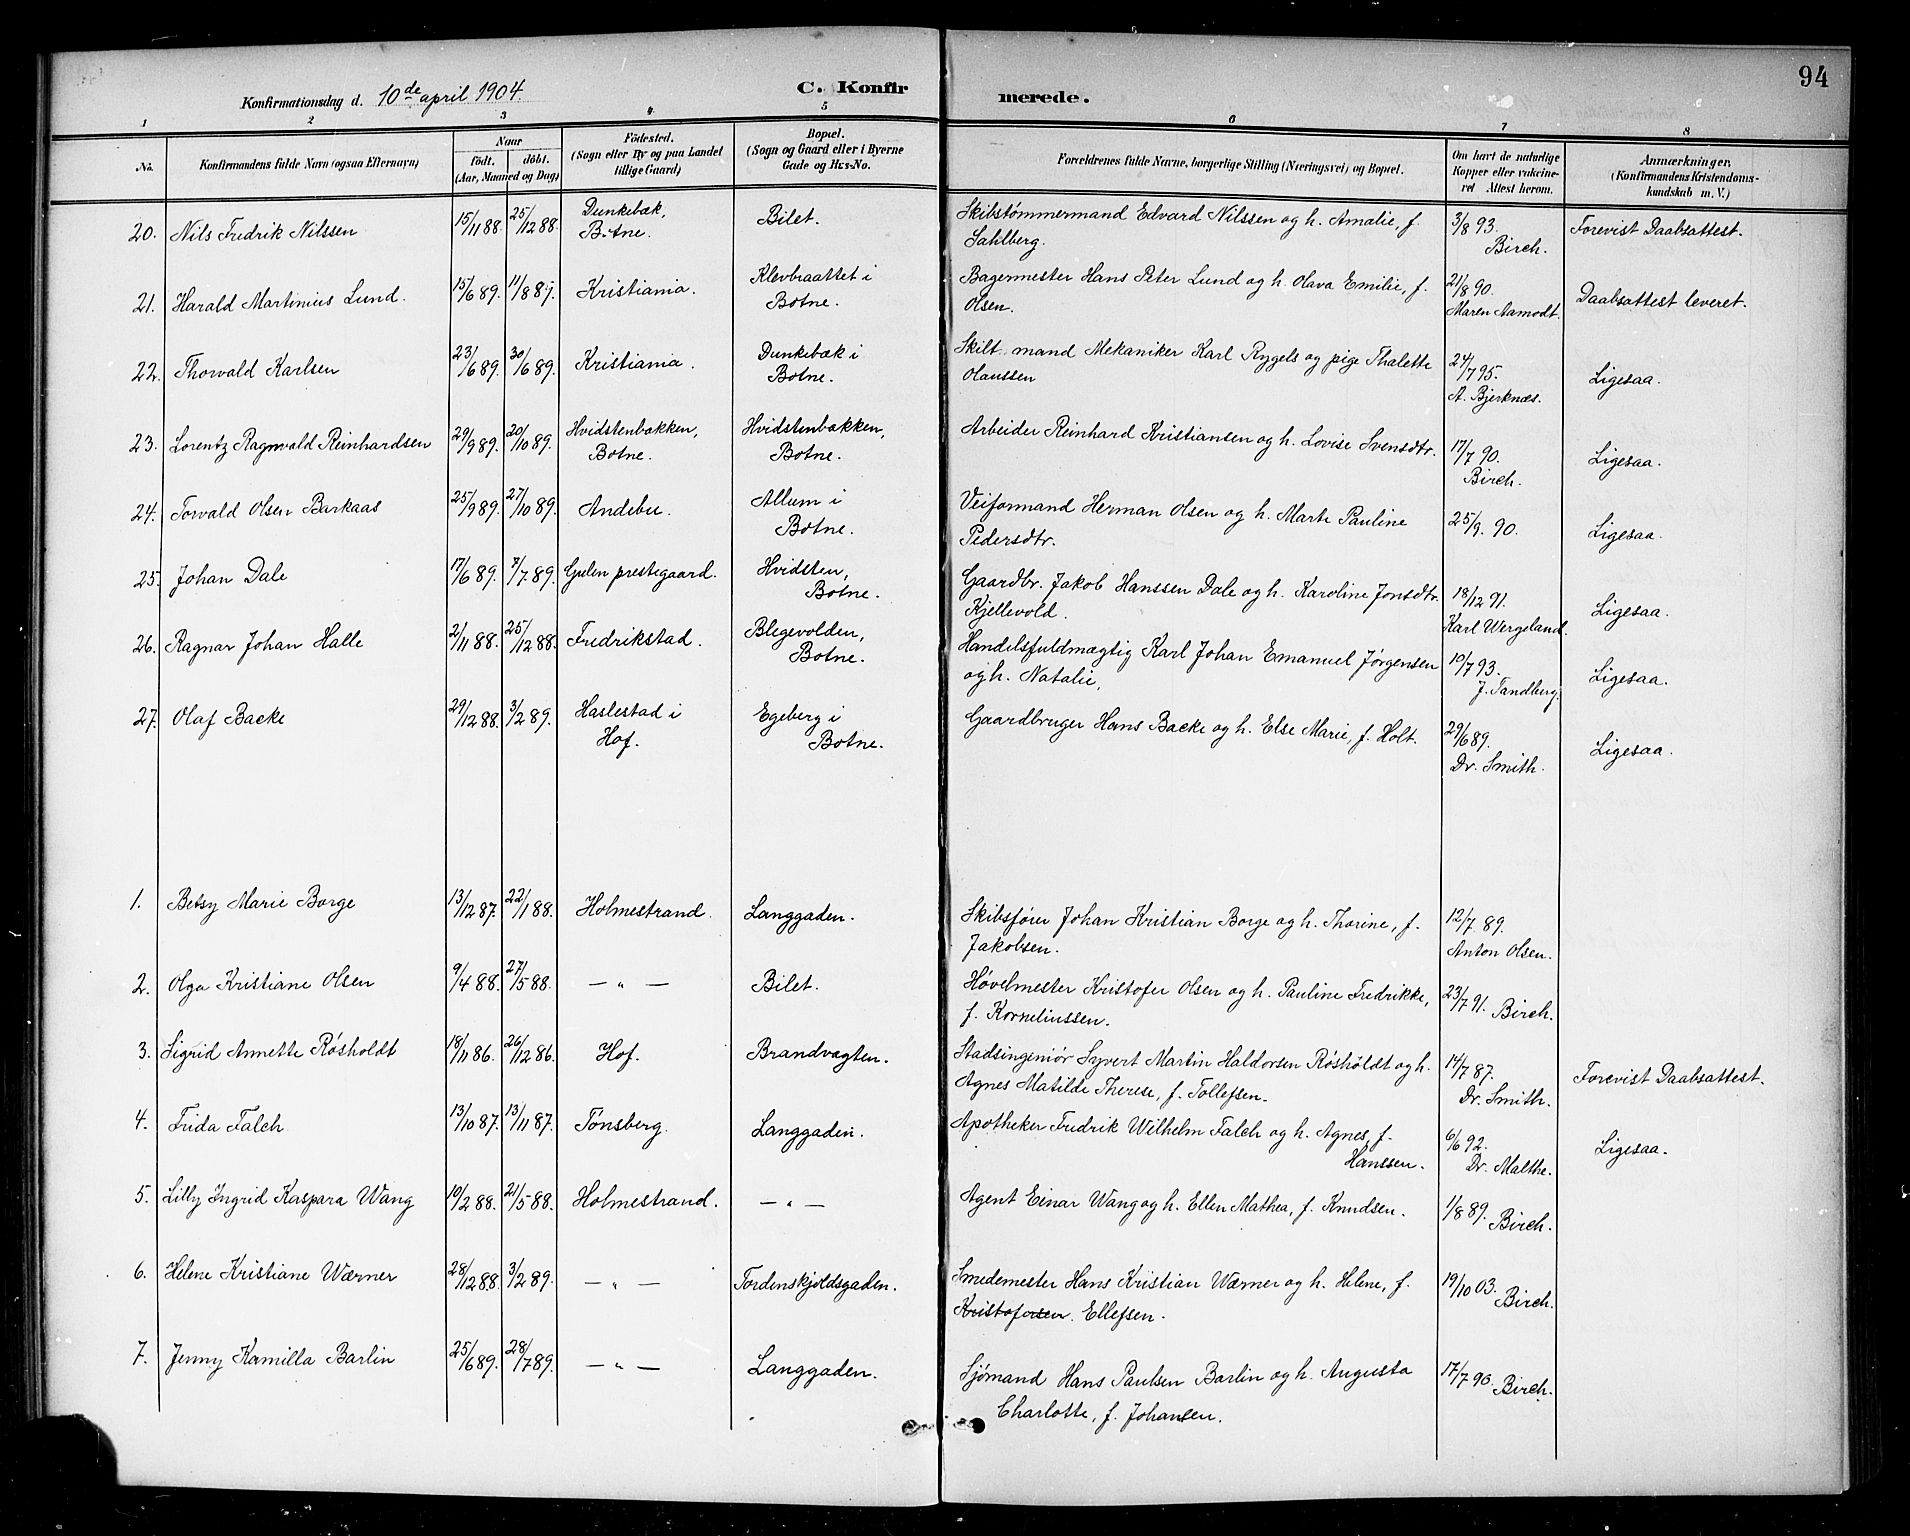 94
Konfirmationsdag d. 10de april 1904.
C. Konfir
merede.
1 2 3 4 5 6 7 8
No.
Konfirmandens fulde Navn (ogsaa Efternavn)
Naar
født. døbt.
(Aar, Maaned og Dag)
Fødested.
(Sogn eller By og paa Landet
tillige Gaard)
Bopæl.
(Sogn og Gaard eller i Byerne
Gade og Hus-No.
Forældrenes fulde Navne, borgerlige Stilling (Næringsvei) og Bopæl.
Om havt de naturlige
Kopper eller vakcine-
ret Attest herom.
Anmærkninger.
(Konfirmandens Kristendoms-
kundskab m. V.)
20. Nils Fredrik Nilssen 15/11 88. 25/12 88. Dunkebæk, Botne. Bilet. Skibstømmermand Edvard Nilssen og h. Amalie, f. 3/8 93. Forevist Daabsattest.
Sahlberg. Birch.
21. Harald Martinius Lund. 15/6 89. 11/8 89. Kristiania. Klevbraattet i Bagermester Hans Peter Lund og h. Olava Emilie, f. 21/8 90. Daabsattest leveret.
Botne. Olsen. Maren Aamodt.
22. Thorvald Karlsen 23/6 89. 30/6 89. Kristiania. Dunkebæk i mand Mekaniker Karl Rygels og pige Thalette 24/7 95. Ligesaa.
Botne. Olaussen A. Bjerknæs.
23. Lorentz Ragnvald Reinhardsen 29/9 89. 20/10 89. Hvidstenbakken, Hvidstenbakken, Arbeider Reinhard Kristiansen og h. Lovise Svensdtr. 17/7 90. Ligesaa.
Botne. Botne. Birch.
24. Torvald Olsen Barkaas 25/9 89. 27/10 89. Andebu. Allum i Veiformand Herman Olsen og h. Marte Pauline 25/9. 90. Ligesaa.
Botne. Pedersdtr.
25. Johan Dale 17/6 89. 7/7 89. Gulen prestegaard. Hvidsten, Gaardbr. Jakob Hanssen Dale og h. Karoline Jonsdtr. 18/12 91. Ligesaa.
Botne. Kjellevold. Karl Wergeland.
26. Ragnar Johan Halle 2/11 88. 25/12 88. Fredrikstad. Blegevolden, Handelsfuldmægtig Karl Johan Emanuel Jørgensen 10/7 93. Ligesaa.
Botne. og h. Natalie, J. Tandberg.
27. Olaf Backe 29/12 88. 3/2 89. Haslestad i Egeberg i Gaardbruger Hans Backe og h. Else Marie, f. Holt. 29/6 89. Ligesaa.
Hof. Botne. Dr. Smith.
1. Betsy Marie Borge 13/12 87. 22/1 88. Holmestrand. Langgaden. Skibsfører Johan Kristian Borge og h. Thorine, f. 12/7 89.
Jakobsen. Anton Olsen.
2. Olga Kristiane Olsen 9/4 88. 27/5 88. — „ — Bilet. Høvelmester Kristofer Olsen og h. Pauline Fredrikke, 23/7 91. Birch.
f. Korneliussen.
3. Sigrid Annette Røsholdt 18/11 86. 26/12 86. Hof. Brandvagten. Stadsingeniør Syvert Martin Haldorsen Røsholdt og h. 14/7 87. Forevist Daabsattest.
Agnes Matilde Therese, f. Tollefsen. Dr. Smith.
4. Frida Falch. 13/10 87. 13/11 87. Tønsberg. Langgaden. Apotheker Fredrik Wilhelm Falch og h. Agnes, f. 6/6 92. Ligesaa.
Hanssen. Dr. Malthe.
5. Lilly Ingrid Kaspara Wang 19/2 88. 21/5 88. Holmestrand. — „ — Agent Einar Wang og h. Ellen Mathea, f. Knudsen. 1/8 89. Birch.
6. Helene Kristiane Wærner 28/12 88. 3/2 89. — „ — Tordenskjoldsgaden. Smedemester Hans Kristian Wærner og h. Helene, f. 19/10 03. Birch.
Kristofersen. Ellefsen.
7. Jenny Kamilla Barlin 25/6 89. 28/7 89. — „ — Langgaden. Sjømand Hans Paulsen Barlin og h. Augusta 17/7 90. Birch.
Charlotte, f. Johansen.